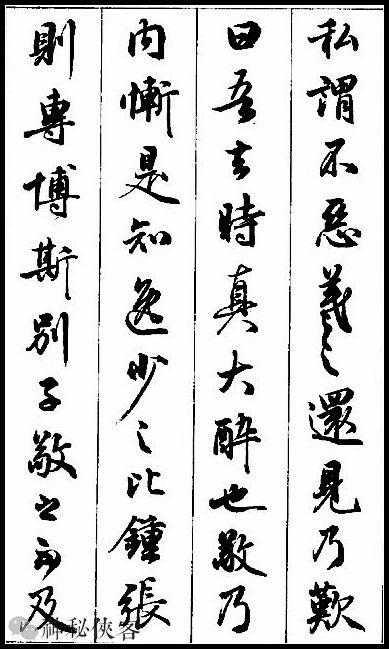 私謂不惡羲之還見乃歎
曰吾去時真大醉也敬乃
内慚是知逸少之比鍾張
則專博斯別子敬之不及
神秘俠客